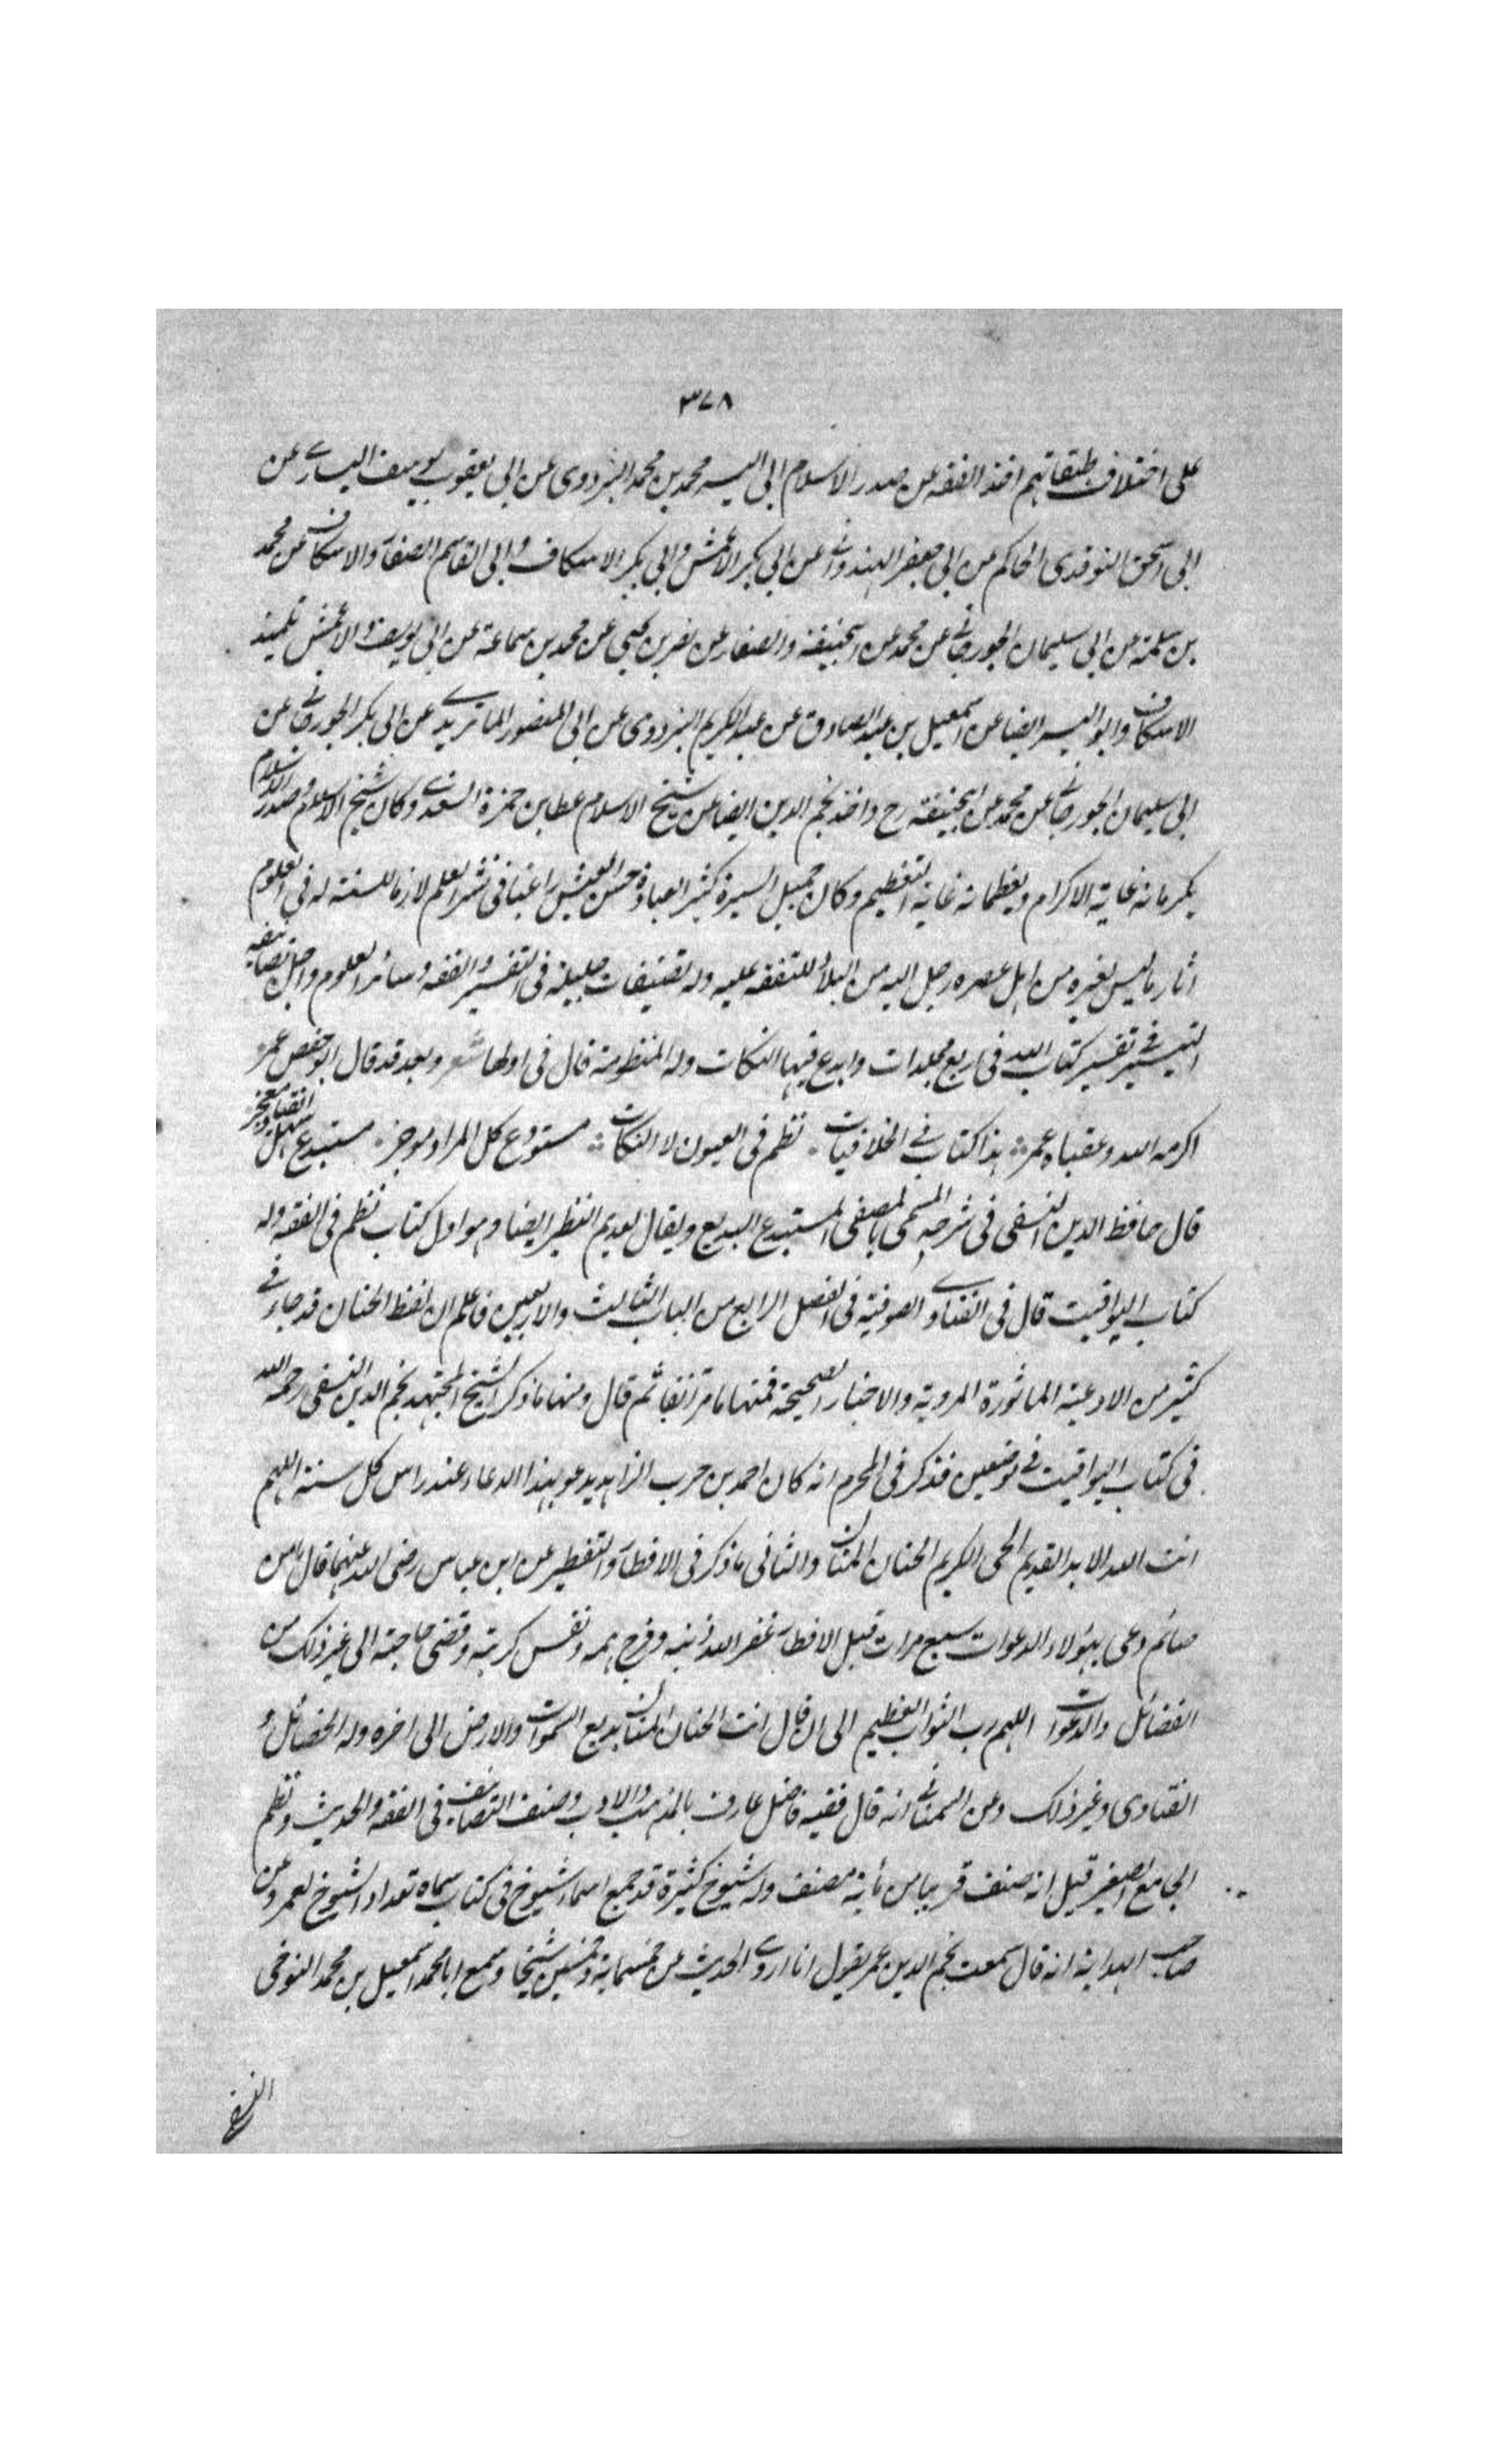 ٣٧٨
على اختلاف طبقاتهم اخذ الفقه عن صدر الاسلام ابى اليسر محمد بن محمد البزدوى عن ابى يعقوب يوسف السيارے عن
ابى اسحق النوقدى الحاكم عن ابى جعفر الهندوانے عن ابى بكر الاعمش وابى بكر الاسكاف وابى القاسم الصفار والاسكاف عن محمد
بن سلمة عن ابى سليمان الجورجانے عن محمد عن ابيحنيفة والصفار عن نصر بن يحيى عن محمد بن سماعة عن ابى يوسف والاعمش تلميذ
الاسكاف وابو اليسر ايضا عن اسمعيل بن عبد الصادق عن عبد الكريم البزدوى عن ابى المنصور الماتريدے عن ابى بكر الجورجانے عن
ابى سليمان الجورجانے عن محمد عن ابيحنيفة رح واخذ نجم الدين ايضا عن شيخ الاسلام عطا بن حمزة السغدے وكان شيخ الاسلام وصدر الاسلام
يكرمانه غاية الاكرام ويعظمانه غاية التعظيم وكان جميل السيرة كثير العبادة حسن العيش راغبا فى نشر العلم لازما للسنة له فى العلوم
اثار ما ليس لغيره من اهل عصره رحل اليه من البلاد للتفقه عليه وله تصنيفات جليلة فى التفسير والفقه وسائر العلوم واجل تصانيفه
التيسير فے تفسير كتاب الله فى اربع مجلدات وابدع فيها النكات وله المنظومة قال فى اولها شعر وبعد قد قال ابو حفص عمر
اكرمه الله وعقباه عمر هذا كتاب فے الخلافيات نظم فى العيون لا النكات مستودع كل المراد موجز مستبدع سهل
قال حافظ الدين النسفى فى شرحه المسمى بالمصفى المستبدع البديع ويقال لعديم النظير ايضا وهو اول كتاب نظم فى الفقه وله
كتاب اليواقيت قال فى الفتاوے الصوفية فى الفصل الرابع من الباب الثالث والاربعين فاعلم ان لفظ الحنان قد جاء فے
كثير من الادعية الماثورة المروية والاخبار الصحيحة فمنها ما مر انفا ثم قال ومنها ما ذكر الشيخ المجتهد نجم الدين النسفى رحمه الله
فى كتاب اليواقيت فے موضعين فذكر فى المحرم انه كان احمد بن حرب الزاهد يدعو بهذا الدعاء عند راس كل سنة اللهم
انت الله الابد القديم الحى الكريم الحنان المنان والثانى ما ذكر فى الافطار والتفطير عن ابن عباس رضى الله عنهما قال ما من
صائم دعى بهؤلاء الدعوات سبع مرات قبل الافطار غفر الله ذنبه وفرج همه ونفس كربته وقضى حاجته الى غير ذلك من
الفضائل والدعوات اللهم رب الثواب العظيم الى ان قال انت الحنان المنان بديع السموات والارض الى اخره وله الخصائل و
الفتاوى وغير ذلك وعن السمعانے انه قال فقيه فاضل عارف بالمذهب والادب وصنف التصانيف فى الفقه والحديث ونظم
الجامع الصغير قيل انه صنف قريبا من مأية مصنف وله شيوخ كثيرة قد جمع اسماء شيوخ فى كتاب سماه تعداد الشيوخ لعمر وعن
صاحب الهداية انه قال سمعت نجم الدين عمر يقول انا اروے الحديث عن خمسماية وخمسين شيخا وسمع ابا محمد اسمعيل بن محمد النوحى
النسفى